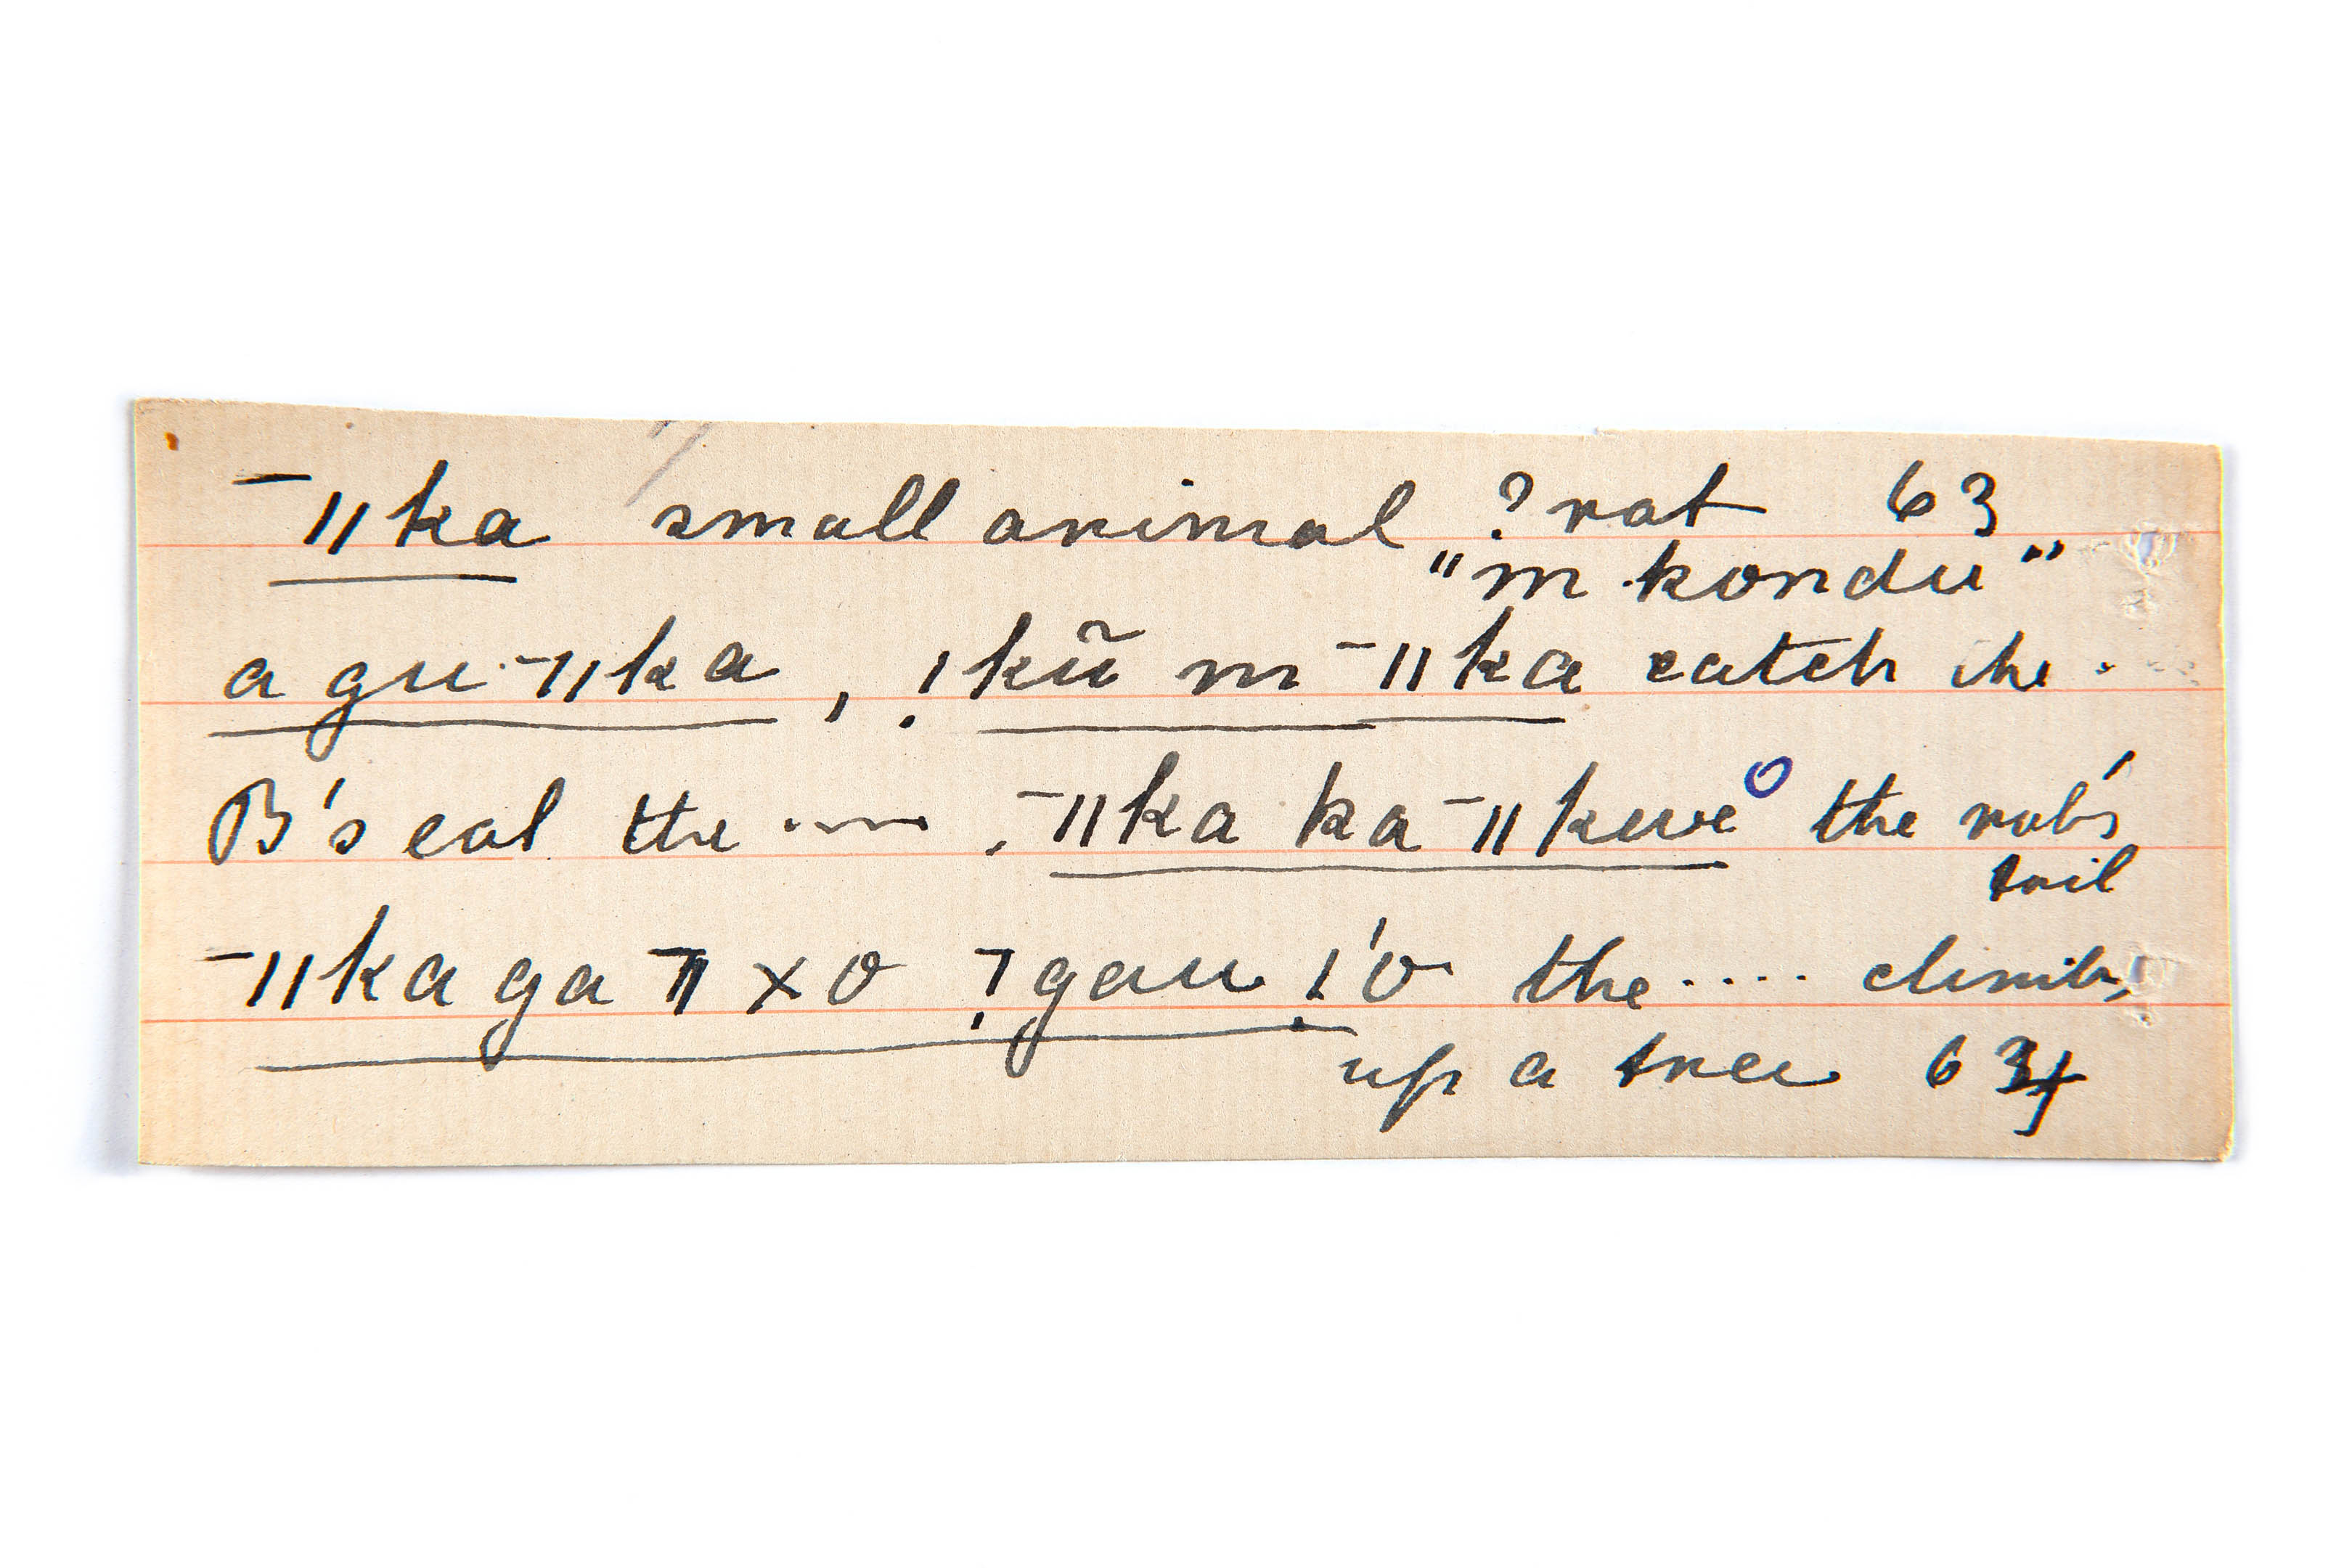 ¯ǁka small animal ? rat 63
"m kondu"
a gu ¯ǁka, !kũ m ¯ǁka catch the .
B's eat the .... ¯ǁka ka ¯ǁkwe the rat's
tail
¯ǁka ga ¯ǁxo ¯!gau !'o the .... climbs
up a tree 634